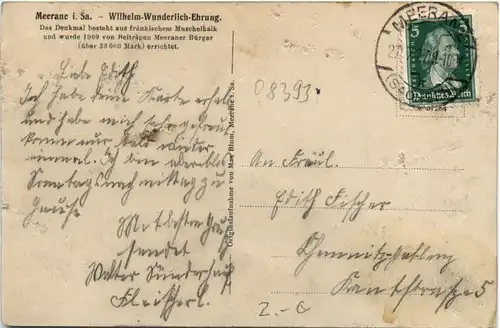 Meerane i. Sa. — Wilhelm-Wunderlich-Ehrung.
Das Denkmal besteht aus fränkischem Muschelkalk
und wurde 1909 von Beiträgen Meeraner Bürger
(über 33 000 Mark) errichtet.
MEERANE
(SA
5
Deutsches Reich
08393
Liebe Edith
Ich habe deine Karte erhalt
und habe mich sehr gefreut
komme nur bald wieder
einmal. Ich bin
Sonntagsnachmittag zu
Hause
Mit besten Gruß
sendet
Walter
Originalaufnahme von Max Blum, Meerane i. Sa.
An Fräul.
Edith Fischer
Chemnitz-
Kantstrasse 5
Z.-G